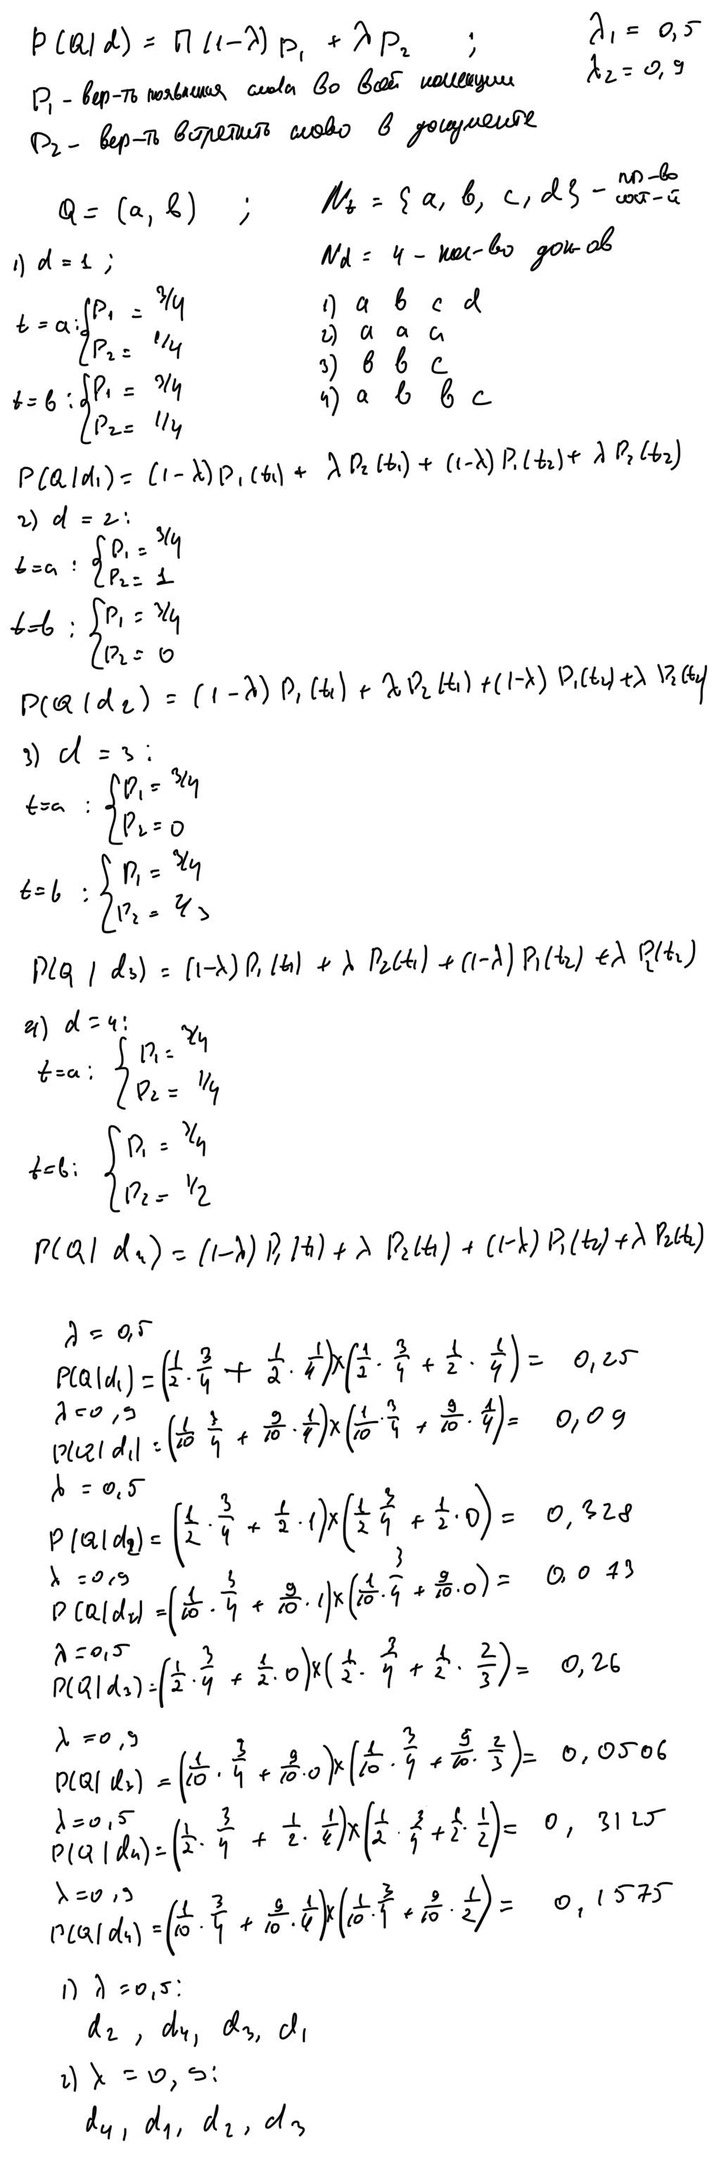 P(Q/d) = П (1-λ) p₁ + λ p₂ ; λ₁ = 0,5
λ₂ = 0,9
P₁ - вер-ть появления слова во всей коллекции
P₂ - вер-ть встретить слово в документе
Q = (a, b) ; N_t = {a, b, c, d} -
1) d = 1 ; N_d = 4 - кол-во док-ов
t = a : { P₁ = 3/4
P₂ = 1/4
t = b : { P₁ = 3/4
P₂ = 1/4
1) a b c d
2) a a a
3) b b c
4) a b b c
P(Q/d₁) = (1-λ) p₁(t₁) + λ P₂(t₁) + (1-λ) P₁(t₂) + λ P₂(t₂)
2) d = 2 :
t=a : { P₁ = 3/4
P₂ = 1
t=b : { P₁ = 3/4
P₂ = 0
P(Q/d₂) = (1-λ) P₁(t₁) + λ P₂(t₁) + (1-λ) P₁(t₂) + λ P₂(t₂)
3) d = 3 :
t=a : { P₁ = 3/4
P₂ = 0
t=b : { P₁ = 3/4
P₂ = 2/3
P(Q/d₃) = (1-λ) P₁(t₁) + λ P₂(t₁) + (1-λ) P₁(t₂) + λ P₂(t₂)
4) d = 4 :
t=a : { P₁ = 3/4
P₂ = 1/4
t=b : { P₁ = 3/4
P₂ = 1/2
P(Q/d₄) = (1-λ) P₁(t₁) + λ P₂(t₁) + (1-λ) P₁(t₂) + λ P₂(t₂)
λ = 0,5
P(Q/d₁) = (1/2 · 3/4 + 1/2 · 1/4) × (1/2 · 3/4 + 1/2 · 1/4) = 0,25
λ = 0,9
P(Q/d₁) = (1/10 · 3/4 + 9/10 · 1/4) × (1/10 · 3/4 + 9/10 · 1/4) = 0,09
λ = 0,5
P(Q/d₂) = (1/2 · 3/4 + 1/2 · 1) × (1/2 · 3/4 + 1/2 · 0) = 0,328
λ = 0,9
P(Q/d₂) = (1/10 · 3/4 + 9/10 · 1) × (1/10 · 3/4 + 9/10 · 0) = 0.073
λ = 0,5
P(Q/d₃) = (1/2 · 3/4 + 1/2 · 0) × (1/2 · 3/4 + 1/2 · 2/3) = 0,26
λ = 0,9
P(Q/d₃) = (1/10 · 3/4 + 9/10 · 0) × (1/10 · 3/4 + 9/10 · 2/3) = 0,0506
λ = 0,5
P(Q/d₄) = (1/2 · 3/4 + 1/2 · 1/4) × (1/2 · 3/4 + 1/2 · 1/2) = 0,3125
λ = 0,9
P(Q/d₄) = (1/10 · 3/4 + 9/10 · 1/4) × (1/10 · 3/4 + 9/10 · 1/2) = 0,1575
1) λ = 0,5 :
d₂ , d₄, d₃, d₁
2) λ = 0,9 :
d₄, d₁, d₂, d₃